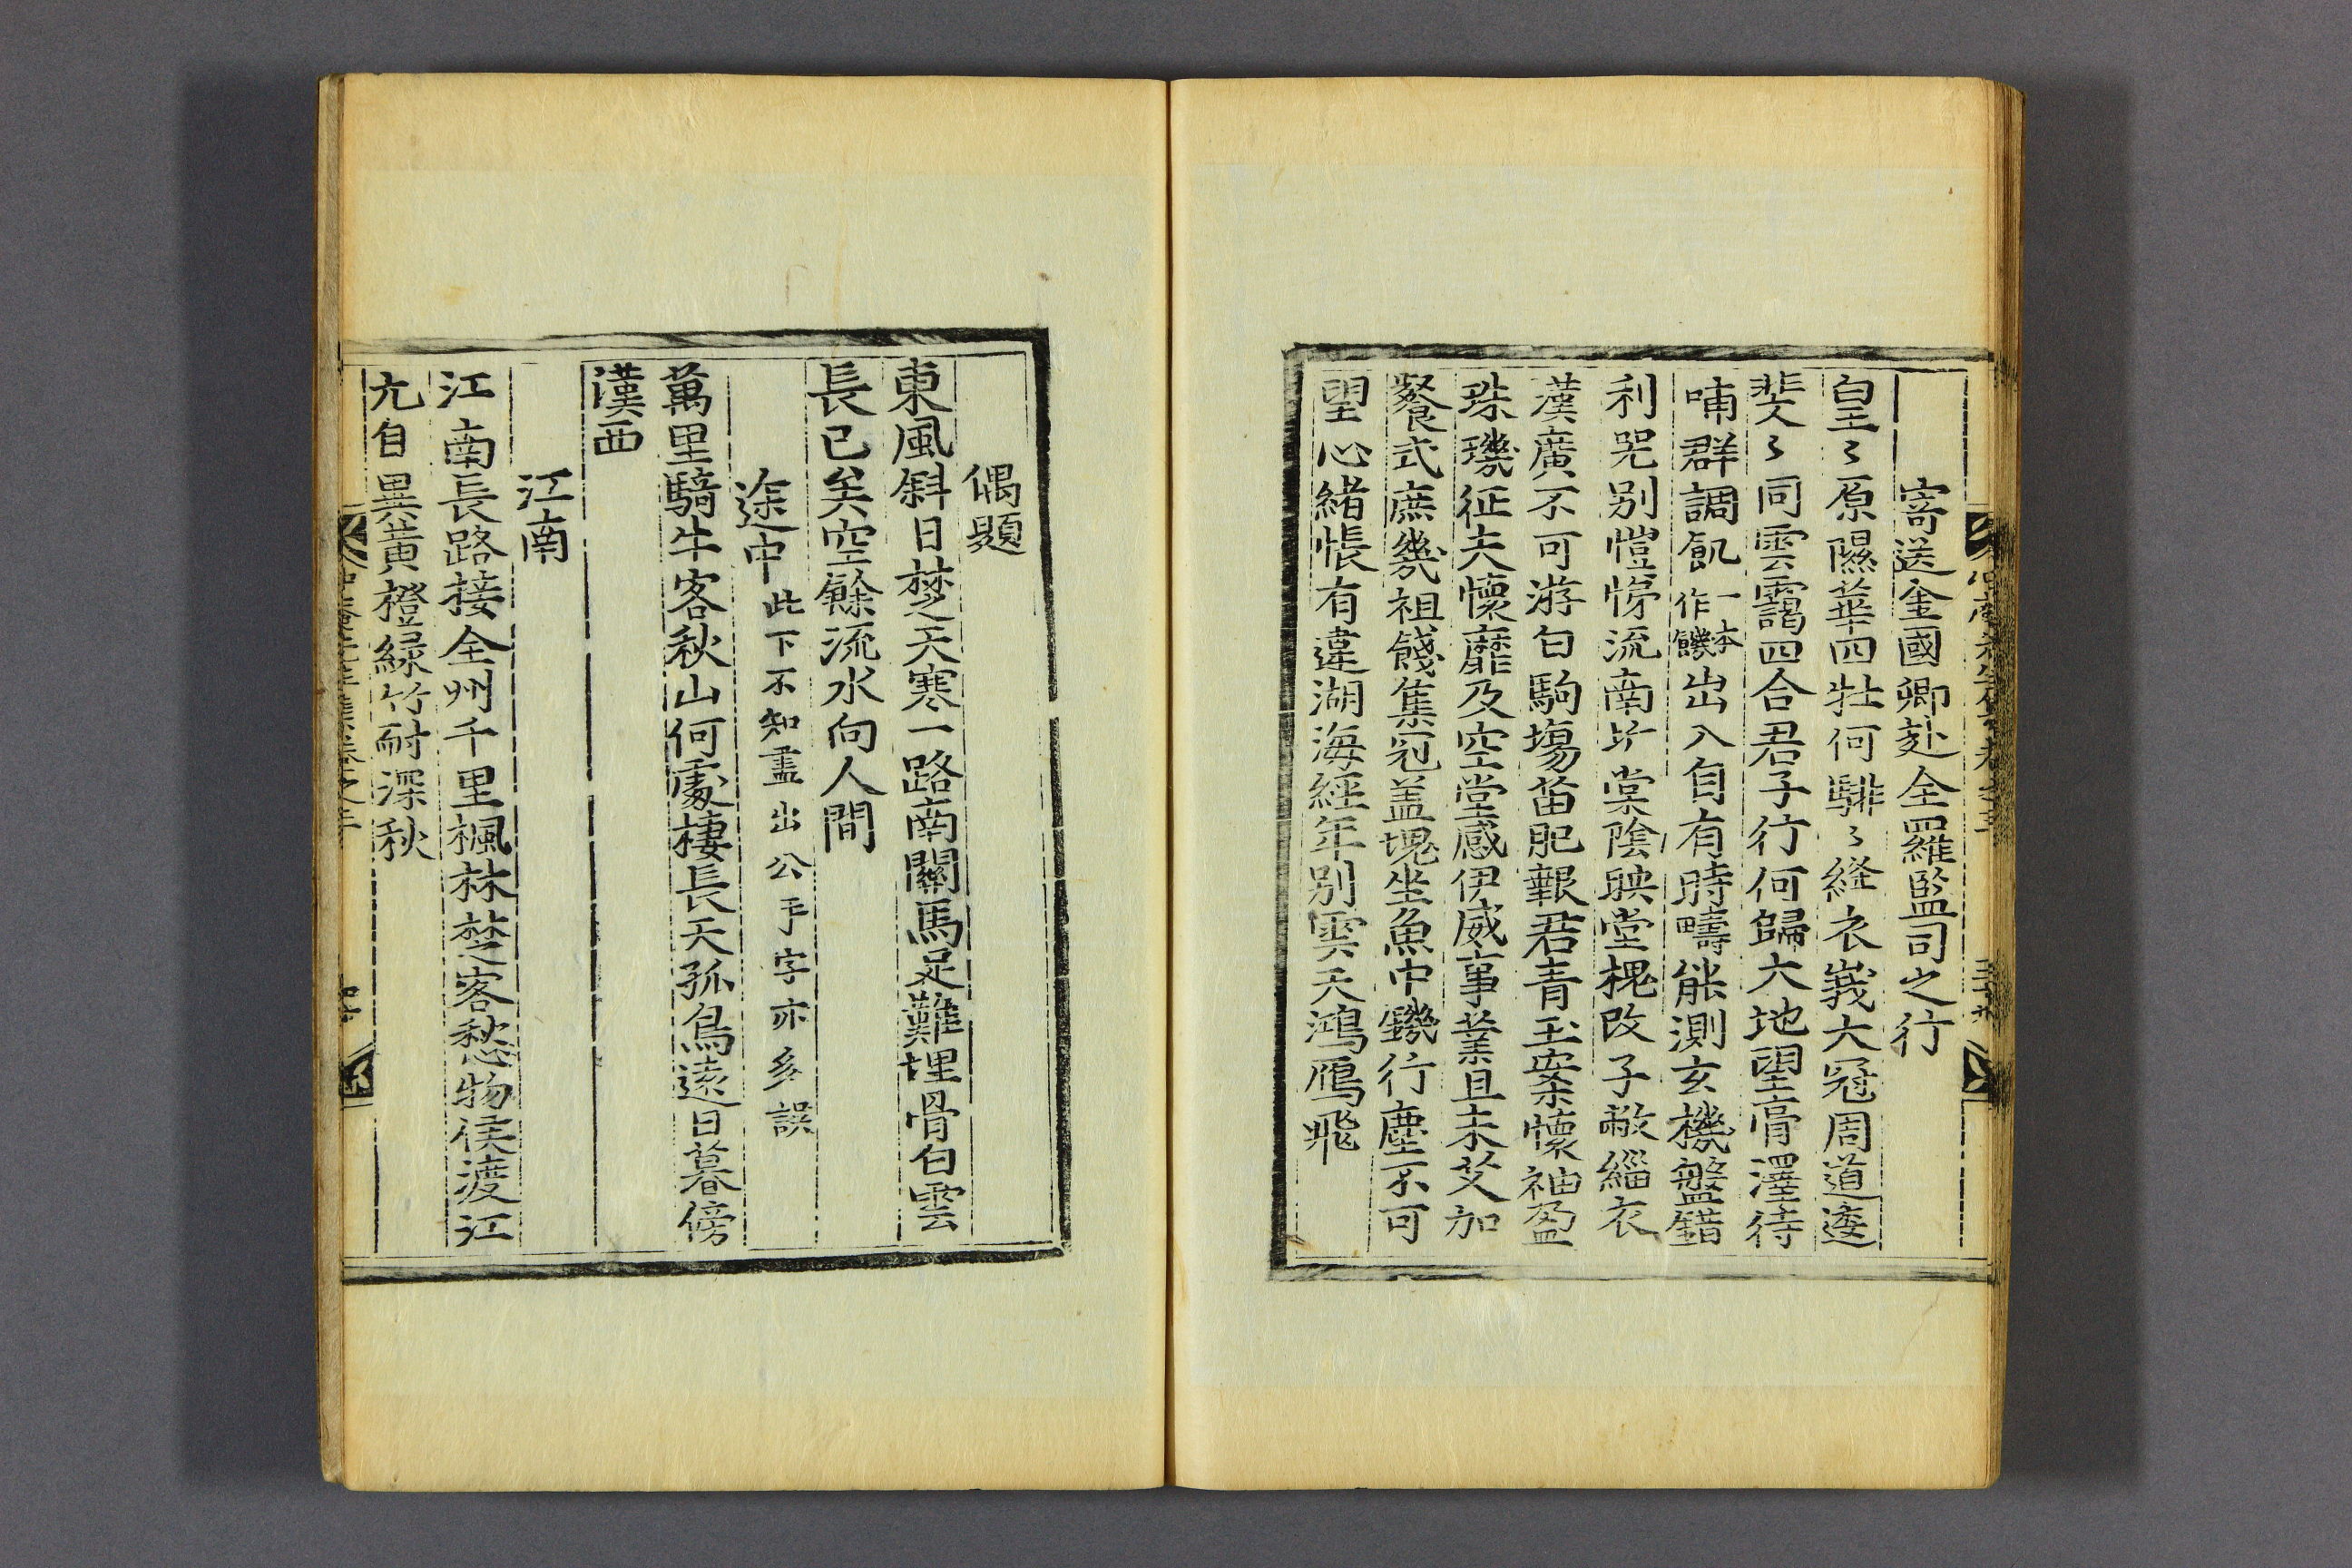 寄送金國卿赴全羅監司之行
皇〻原隰華四牡何騑〻縫衣峩大冠周道逶
斐〻同雲靄四合君子行何歸大地望膏澤待
哺群調飢一本作饑出入自有時疇能測玄機盤錯
利器別愷悌流南北棠陰映堂槐改子敝緇衣
漢廣不可游白駒場苗肥報君青玉案懷袖盈
珠璣征夫懷靡及空堂感伊威事業且未艾加
餐式庶幾祖餞集冠盖塊坐魚中鐖行塵不可
望心緒悵有違湖海經年別雲天鴻雁飛
偶題
東風斜日楚天寒一路南關馬足難埋骨白雲
長已矣空餘流水向人間
途中此下不知盡出公手字亦多誤
萬里騎牛客秋山何處棲長天孤鳥遠日暮傍
漢西
江南
江南長路接全州千里楓林楚客愁物候渡江
尤自異黃橙綠竹耐深秋